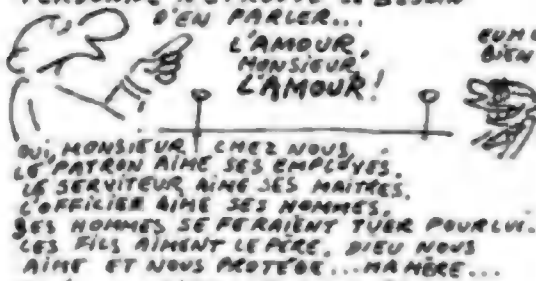 D'EN PARLER...
L'AMOUR,
MONSIEUR,
L'AMOUR!
BIEN
OUI, MONSIEUR, CHEZ NOUS,
LE PATRON AIME SES EMPLOYES,
LE SERVITEUR AIME SES MAITRES,
L'OFFICIER AIME SES HOMMES,
SES HOMMES SE FERAIENT TUER POUR LUI.
LES FILS AIMENT LE PÈRE, DIEU NOUS
AIME ET NOUS PROTEGE... MA MÈRE...